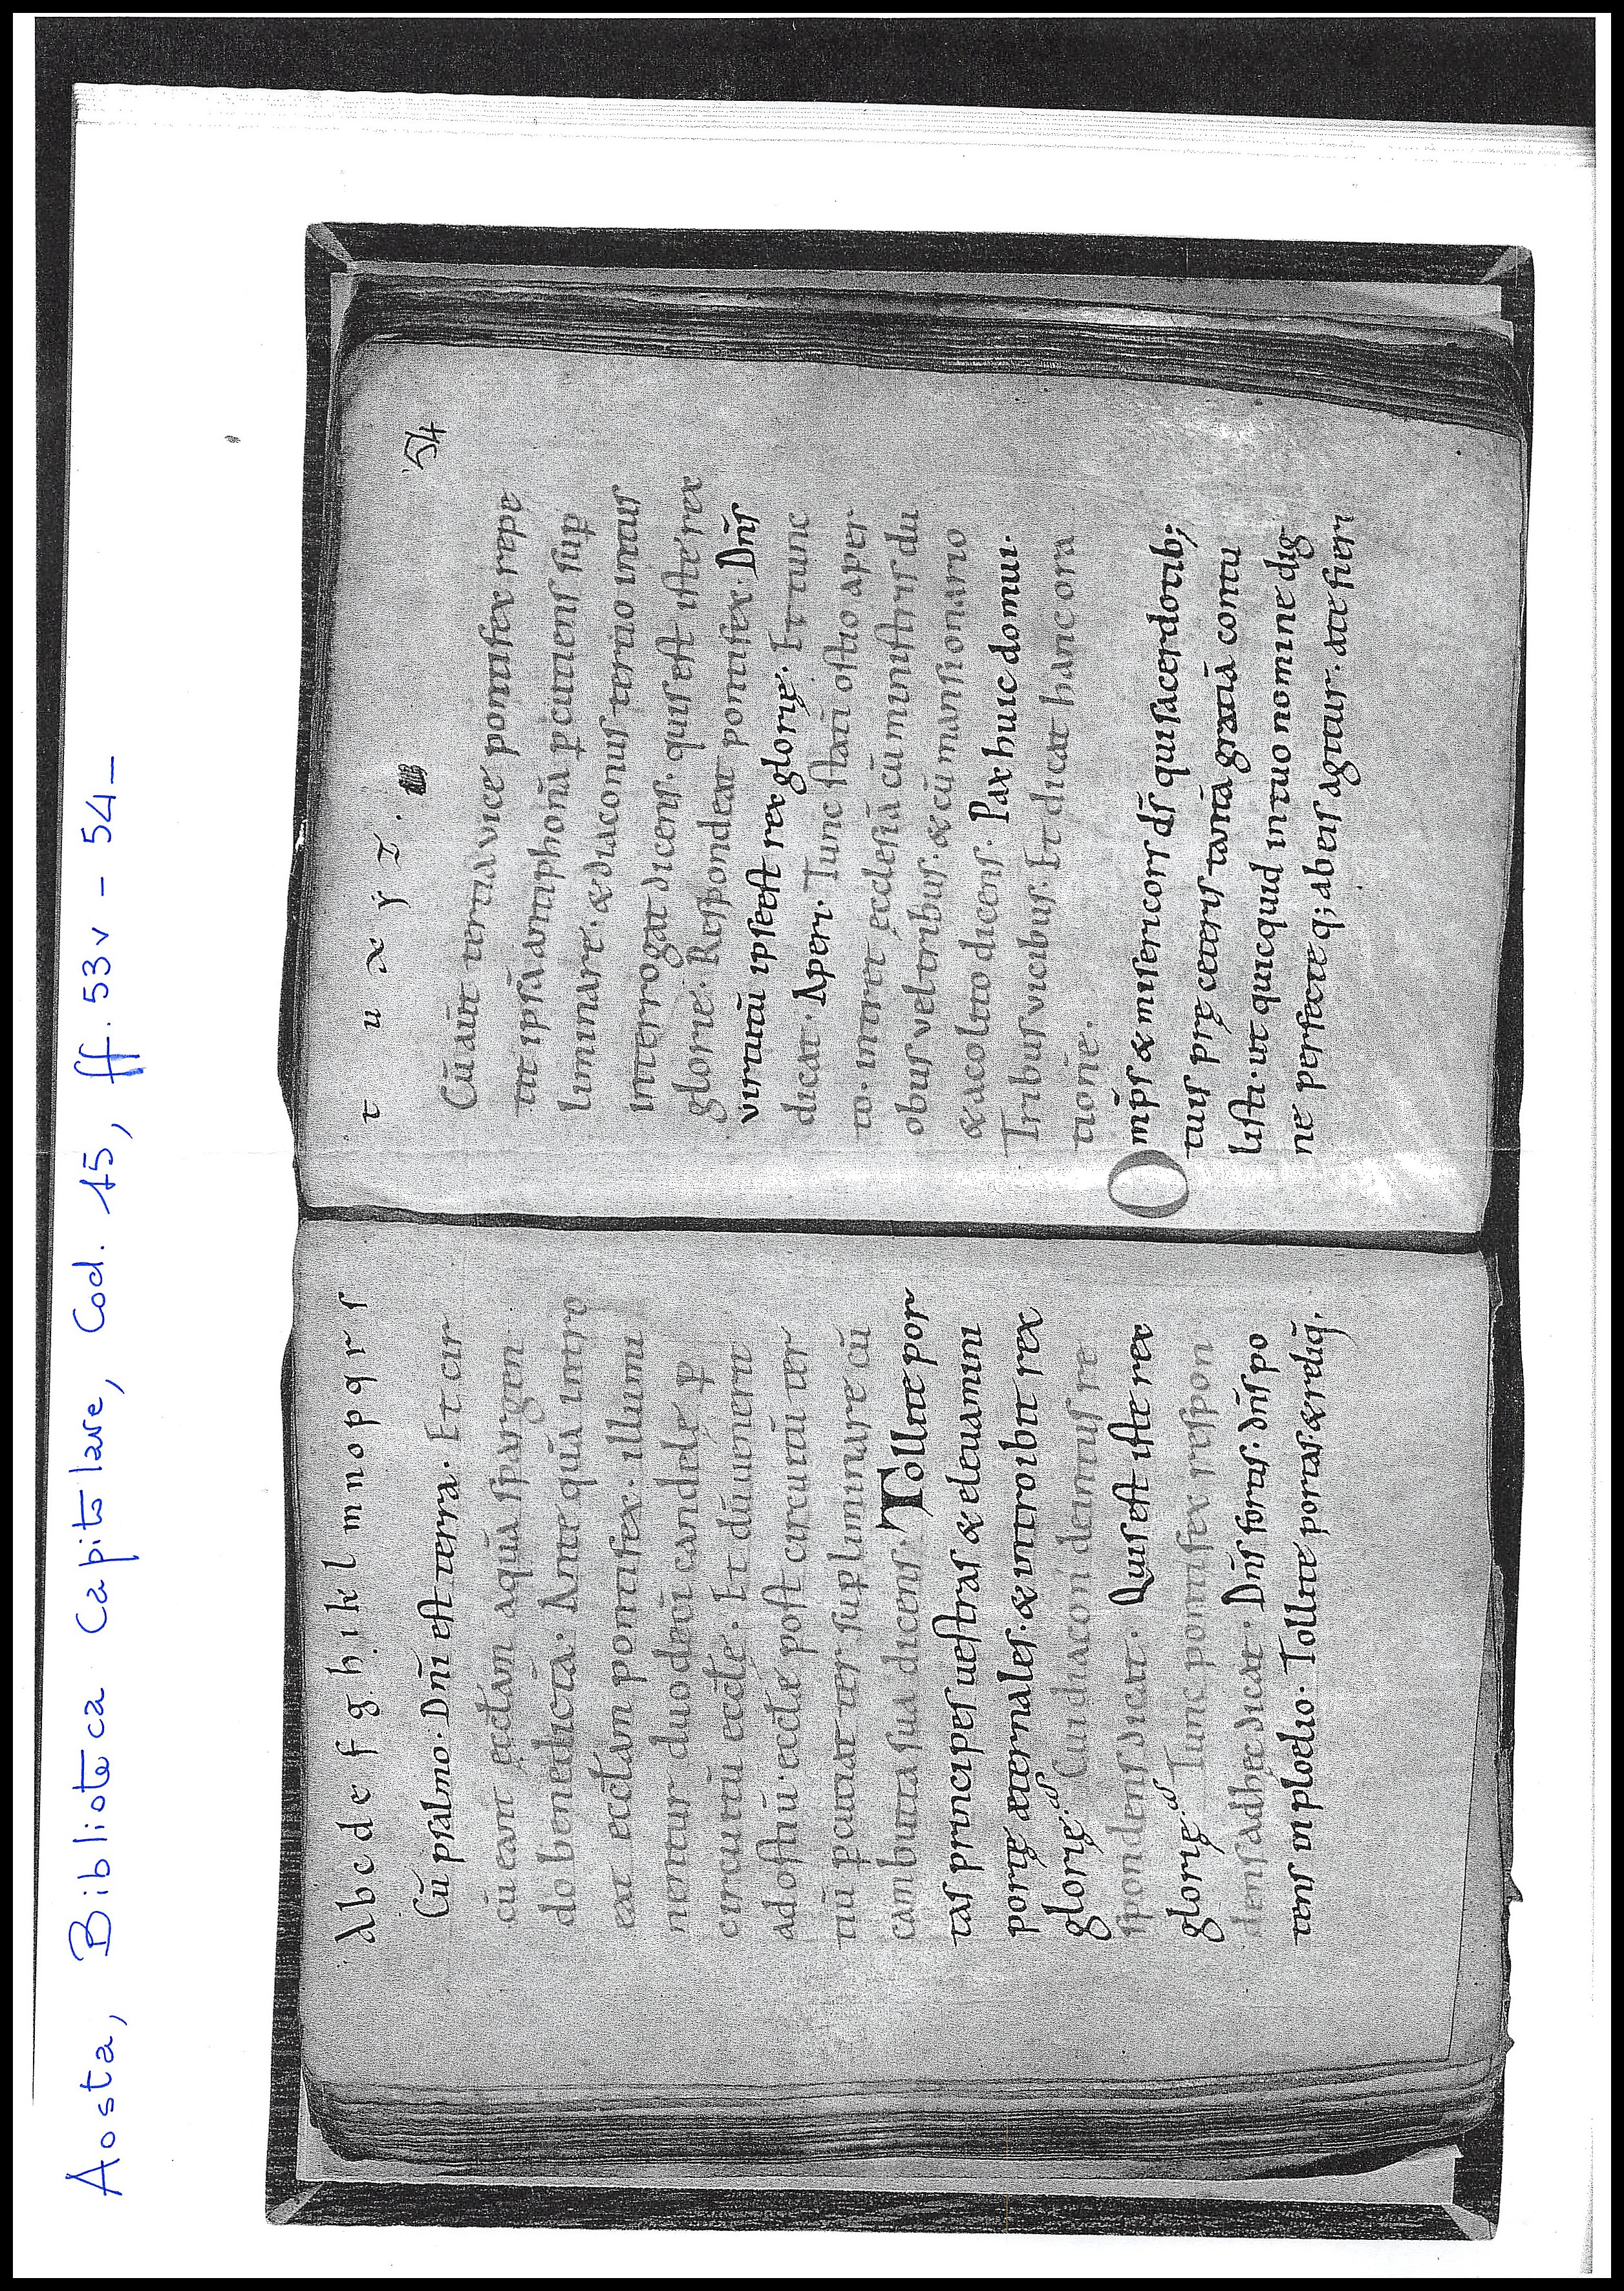 Aosta, Biblioteca Capitolare, Cod. 15, ff. 53v - 54
A b c d e f g h i k l m n o p q r ſ
Cū pſalmo. Dnī eſt terra. Et cir
cū eant ęccłam aquā ſpargen
do benedictā. Ante quā intro
eat eccłam pontifex. illumi
nentur duodeci candelę p̄
circuitū eccłe. Et dū uenerit
ad oſtiū eccłe poſt circuitū ter
tiū p̱cutiat ter ſup̱liminare cū
cambutta ſua dicenſ. Tollite por
taſ principeſ ueſtraſ & eleuamini
portę ęternaleſ. & introibit rex
glorię.
Cui diaconi deintuſ re
ſpondenſ dicat. Quiſ eſt iſte rex
glorię.
Tunc pontifex reſpon
denſ adhęc dicat. Dn̄ſ fortiſ. dn̄ſ po
tenſ in p̱lodio. Tollite portaſ. & reliq̄.
54
t u x ẏ z.
Cū aūt tertia vice pontifex repe
tit ipſā antiphonā p̱cutienſ ſup̱
liminare. & diaconuſ tertio intuſ
interrogat dicenſ. quiſ eſt iſte rex
glorie. Reſpondeat pontifex. Dn̄ſ
virtutū ipſe eſt rex glorię. Et tunc
dicat. Aperi. Tunc ſtati oſtio aper
to. intret ęccleſiā cū miniſtriſ du
obuſ vel tribuſ. & cū manſionario
& acolito dicenſ. Pax huic domui.
Tribuſ vicibuſ. Et dicat hanc ora
tionē.
Omp̄ſ & miſericorſ dſ̄ qui ſacerdotib;
tuiſ prę ceteriſ tantā gratiā contu
liſti. ut quicquid in tuo nomine dig
nę perfecte q; ab eiſ agitur. a te fieri